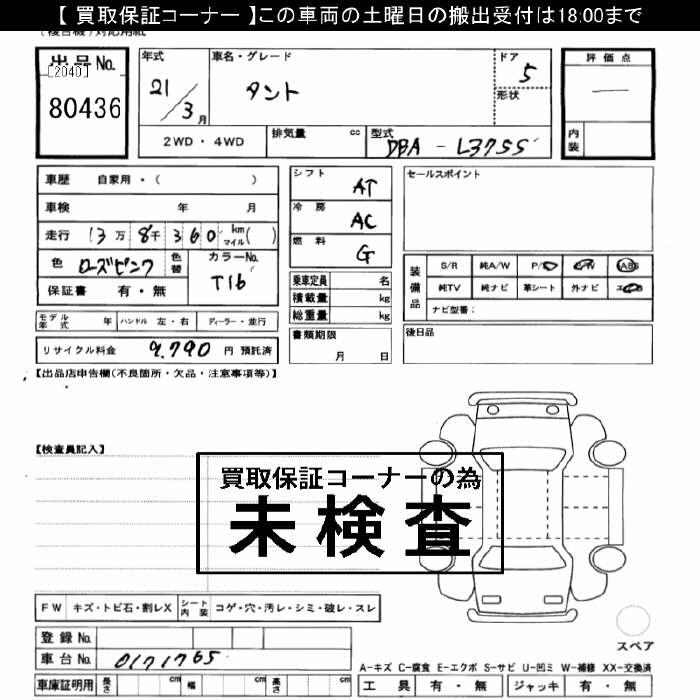 【 買取保証コーナー 】この車両の土曜日の搬出受付は18:00まで
出品No.
[2040]
80436
年式
21／3月
車名・グレード
タント
ドア
5
形状
評価点
内装
2WD・4WD
排気量 cc
型式 DBA - L375S
車歴 自家用・( )
車検 年 月
走行 13万 8千 360 km マイル( )
色 ローズピンク 色替 カラーNo. T16
保証書 有・無
シフト AT
冷房 AC
燃料 G
乗車定員 名
積載量 kg
総重量 kg
書類期限
月 日
セールスポイント
装備品
S/R 純A/W P/S P/W ABS
純TV 純ナビ 革シート 外ナビ エアB
ナビ型番：
後日品
モデル年式 年 ハンドル 左・右 ディーラー・並行
リサイクル料金 9.790 円 預託済
【出品店申告欄(不良箇所・欠品・注意事項等)】
【検査員記入】
買取保証コーナーの為
未検査
FW キズ・トビ石・割レX シート内装 コゲ・穴・汚レ・シミ・破レ・スレ
スペア
登録No.
車台No. 0171765
A-キズ C-腐食 E-エクボ S-サビ U-凹ミ W-補修 XX-交換済
車庫証明用 長さ cm 幅 cm 高さ cm
工具 有・無 ジャッキ 有・無